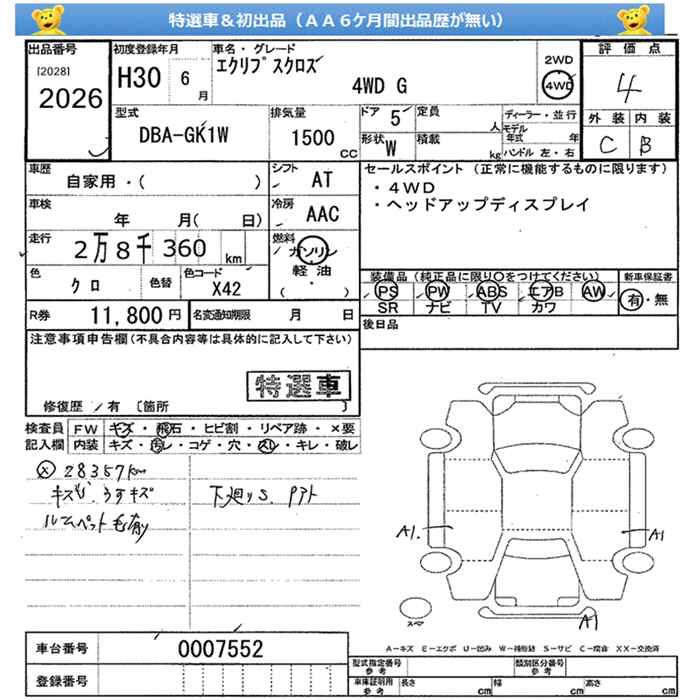 特選車＆初出品（ＡＡ６ケ月間出品歴が無い）
出品番号
[2028]
2026
初度登録年月
H30 6月
車名・グレード
エクリプスクロス
4WD G
2WD
4WD
評価点
4
外装 内装
C B
型式
DBA-GK1W
排気量
1500 cc
ドア 5
定員 人
形状 W
積載 kg
ディーラー・並行
モデル年式 年
ハンドル 左・右
車歴
自家用・( )
シフト
AT
車検
年 月( 日)
冷房
AAC
走行
2万8千360 km
燃料
ガソリン
軽油
( ・ )
色
クロ
色替
色コード
X42
R券
11,800円
名変通知期限 月 日
セールスポイント (正常に機能するものに限ります)
・4WD
・ヘッドアップディスプレイ
装備品 (純正品に限り○をつけてください)
新車保証書
PS PW ABS エアB AW
有・無
SR ナビ TV カワ
後日品
注意事項申告欄(不具合内容等は具体的に記入して下さい)
特選車
修復歴 / 有 〔箇所 〕
検査員記入欄
FW キズ・飛石・ヒビ割・リペア跡・×要
内装 キズ・汚レ・コゲ・穴・スレ・キレ・破レ
28357km
キズ うすキズ
ルームペット毛有
下廻りS. Pアト
A1.
A1
A1
スペア
A−キズ E−エクボ U−凹み W−補修跡 S−サビ C−腐食 XX−交換済
車台番号
0007552
登録番号
型式指定番号
参考
類別区分番号
参考
車庫証明用
参考
長さ cm
幅 cm
高さ cm